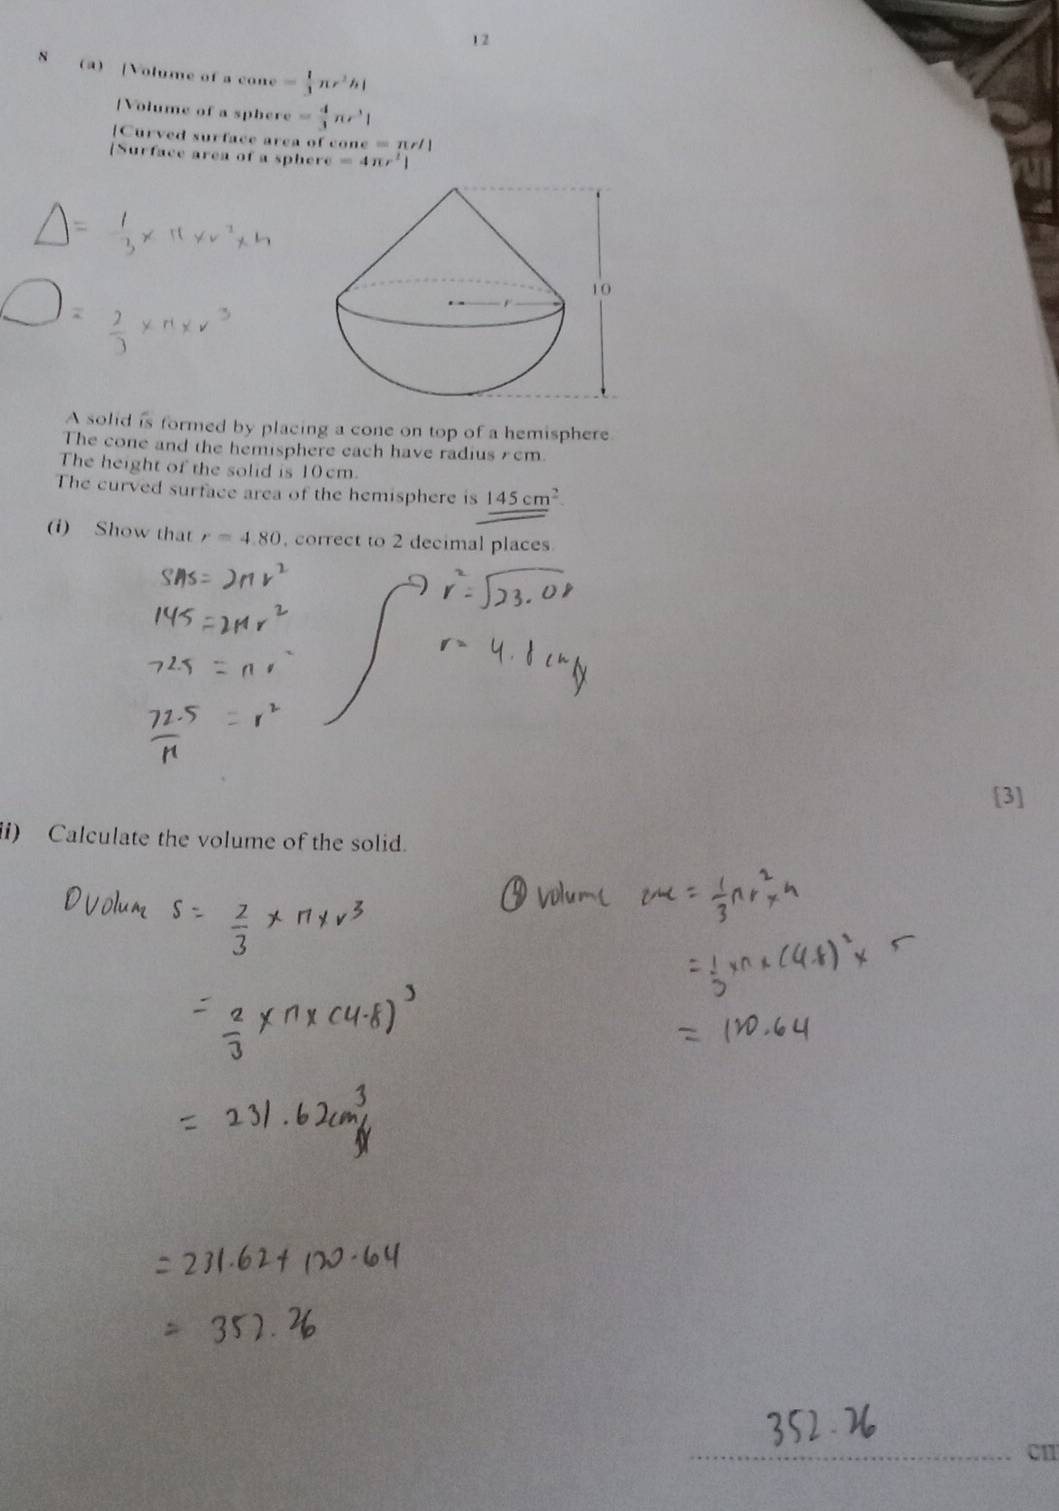 12
8 (a) [Volume of a cone = 1/3 πr²h]
[Volume of a sphere = 4/3 πr³]
[Curved surface area of cone = πrl]
[Surface area of a sphere = 4πr²]
= 1/3 × π × r² × h
= 2/3 × π × r³
10
r
A solid is formed by placing a cone on top of a hemisphere.
The cone and the hemisphere each have radius r cm.
The height of the solid is 10 cm.
The curved surface area of the hemisphere is 145 cm².
(i) Show that r = 4.80, correct to 2 decimal places.
SAS = 2πr²
145 = 2πr²
72.5 = πr²
72.5/π = r²
r² = √23.08
r = 4.8 cm
[3]
ii) Calculate the volume of the solid.
① volume S = 2/3 × π × r³
= 2/3 × π × (4.8)³
= 231.62 cm³
volume cone = 1/3 πr² × h
= 1/3 × π × (4.8)² × 5
= 120.64
= 231.62 + 120.64
= 352.26
352.26
cm